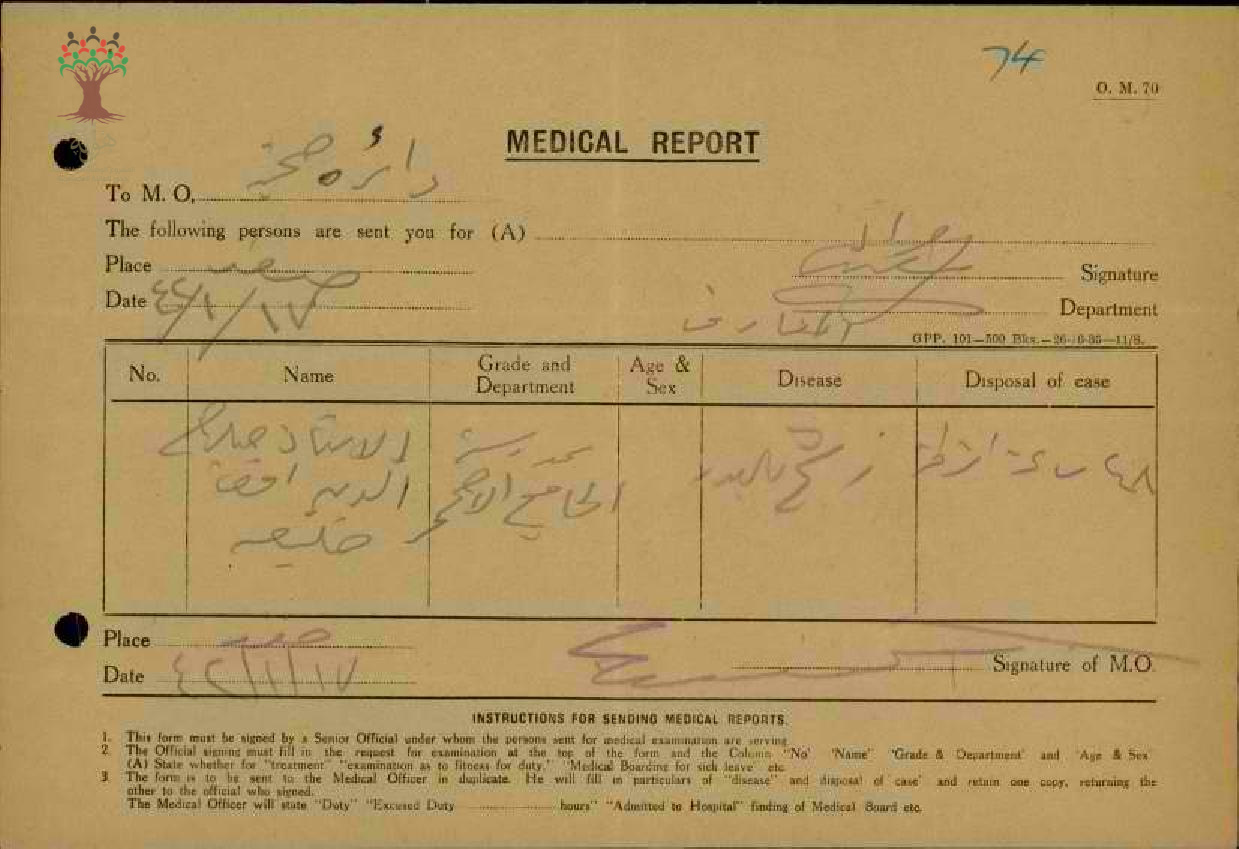 74
O. M. 70
MEDICAL REPORT
To M. O, دائرة صحة
The following persons are sent you for (A)
Place صفد
Signature
Date
Department المعارف
GPP. 101—500 Bks.—26-6-35—11/S.
No. Name Grade and Department Age & Sex Disease Disposal of case
الاستاذ صلاح مدرسة
الدين الجامع الاحمر
Place صفد
Signature of M.O.
Date
INSTRUCTIONS FOR SENDING MEDICAL REPORTS.
1. This form must be signed by a Senior Official under whom the persons sent for medical examination are serving
2 The Official signing must fill in the request for examination at the top of the form and the Column "No" "Name" "Grade & Department" and "Age & Sex"
(A) State whether for "treatment" "examination as to fitness for duty," "Medical Boarding for sick leave" etc.
3 The form is to be sent to the Medical Officer in duplicate. He will fill in particulars of "disease" and disposal of case" and retain one copy, returning the
other to the official who signed.
The Medical Officer will state "Duty" "Excused Duty hours" "Admitted to Hospital" finding of Medical Board etc.